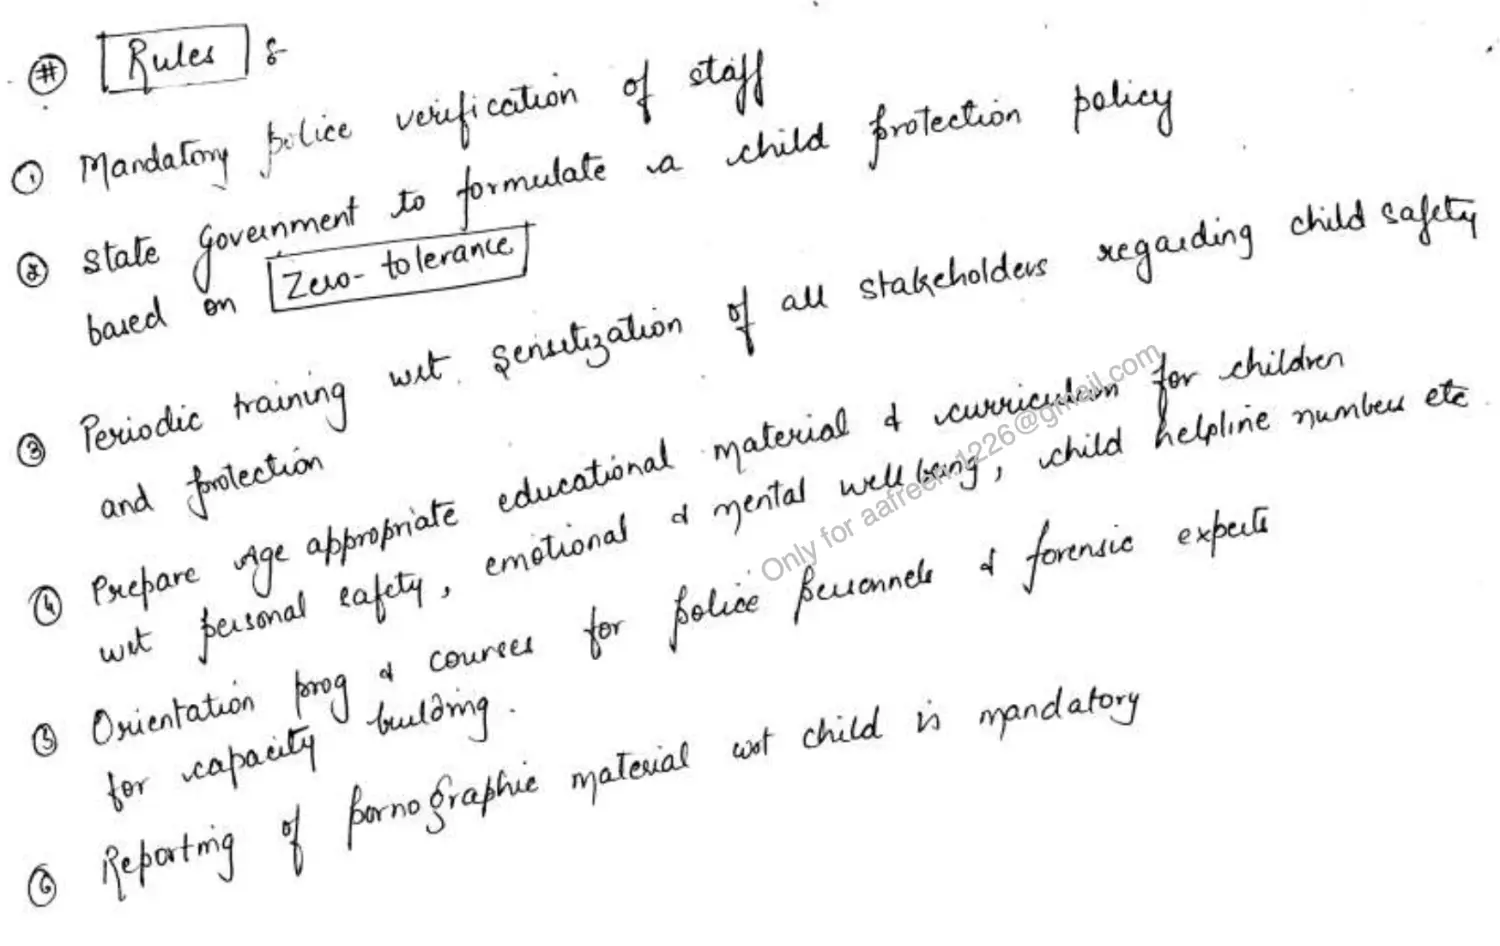 # Rules :-
① Mandatory police verification of staff
② State Government to formulate a child protection policy
based on Zero-tolerance
③ Periodic training wrt sensitization of all stakeholders regarding child safety
and protection
④ Prepare Age appropriate educational material & curriculum for children
wrt personal safety, emotional & mental well being, child helpline numbers etc
⑤ Orientation prog & courses for police personnels & forensic experts
for capacity building.
⑥ Reporting of pornographic material wrt child is mandatory
Only for aafreen1226@gmail.com